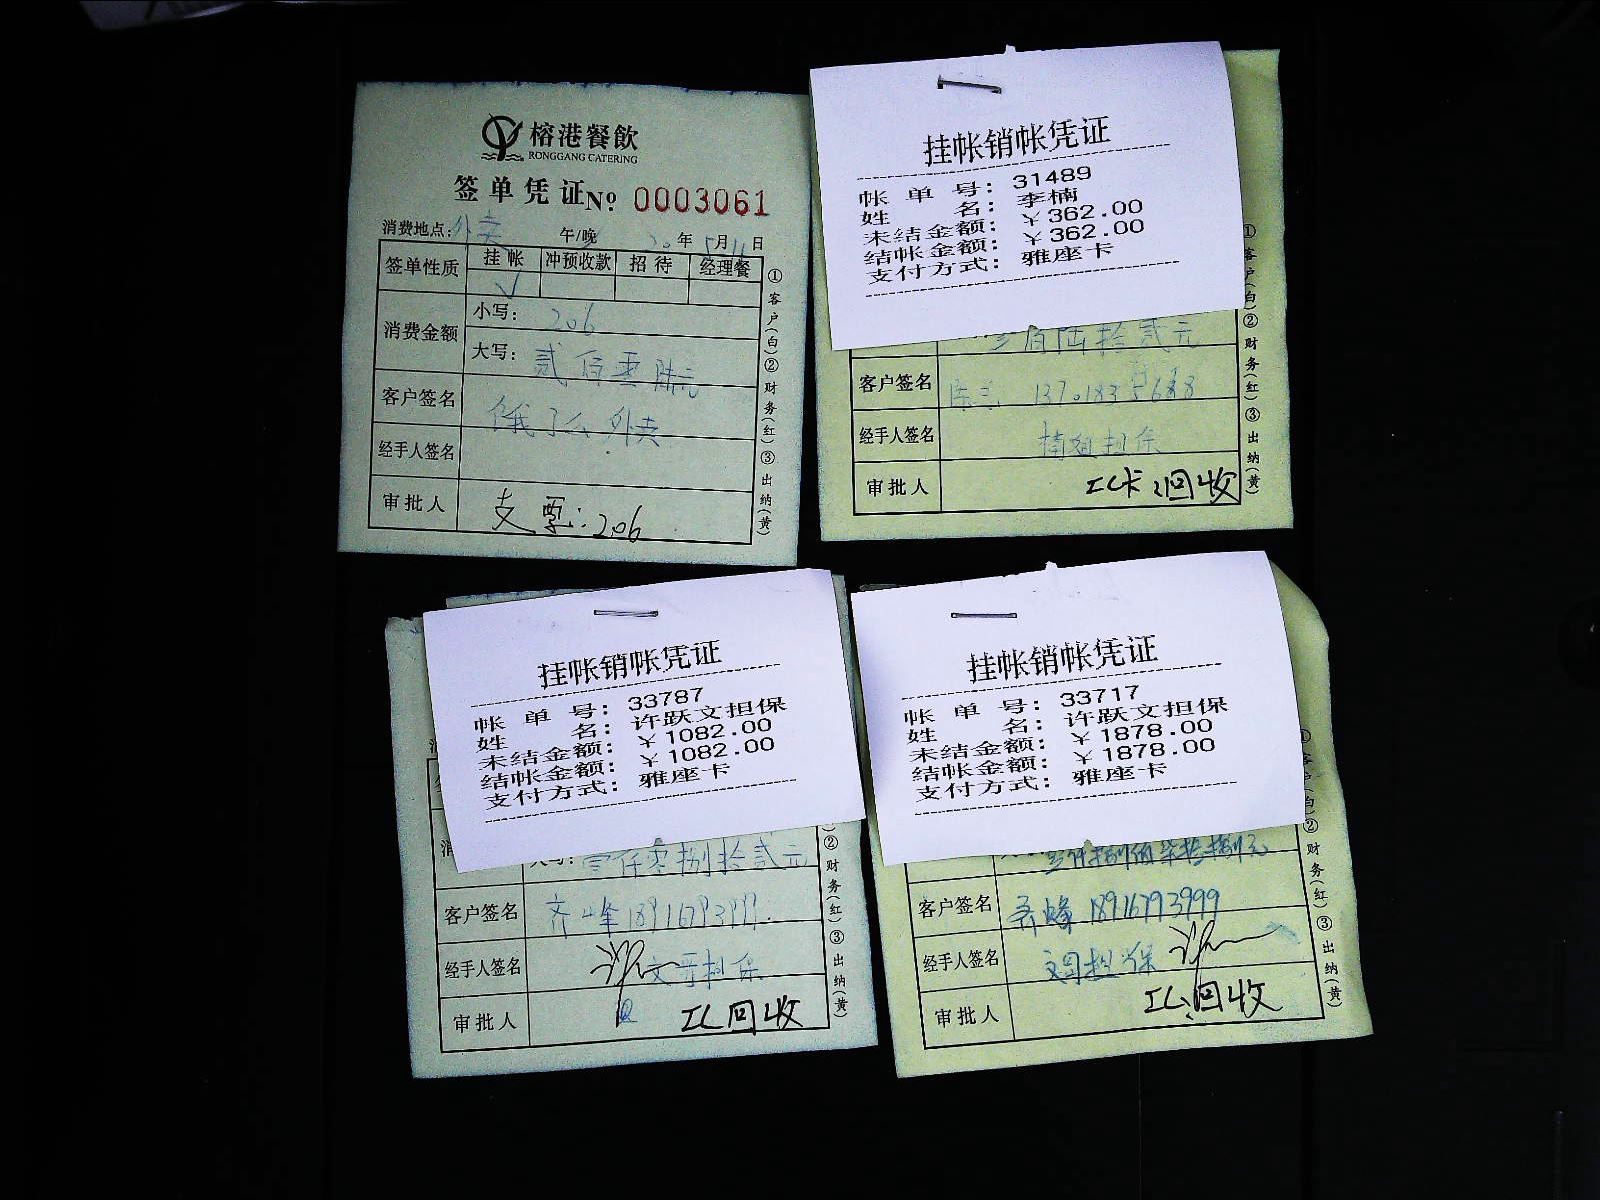 榕港餐飲
RONGGANG CATERING
签单凭证 No: 0003061
消费地点: 外卖 午/晚 20 年 5 月 11 日
签单性质 挂帐 冲预收款 招待 经理餐
√
消费金额 小写: 206
大写: 贰佰零陆元
客户签名 饿了么外卖
经手人签名
审批人 支票: 206
①客户(白)②财务(红)③出纳(黄)
挂帐销帐凭证
帐单号: 31489
姓名: 李楠
未结金额: ￥362.00
结帐金额: ￥362.00
支付方式: 雅座卡
叁佰陆拾贰元
客户签名 13701835688
经手人签名 楠姐担保
审批人 回收
①客户(白)②财务(红)③出纳(黄)
挂帐销帐凭证
帐单号: 33787
姓名: 许跃文担保
未结金额: ￥1082.00
结帐金额: ￥1082.00
支付方式: 雅座卡
大写: 壹仟零捌拾贰元
客户签名 齐峰 18916793999
经手人签名 担保
审批人 回收
②财务(红)③出纳(黄)
挂帐销帐凭证
帐单号: 33717
姓名: 许跃文担保
未结金额: ￥1878.00
结帐金额: ￥1878.00
支付方式: 雅座卡
壹仟捌佰柒拾捌元
客户签名 齐峰 18916793999
经手人签名 担保
审批人 回收
①客户(白)②财务(红)③出纳(黄)